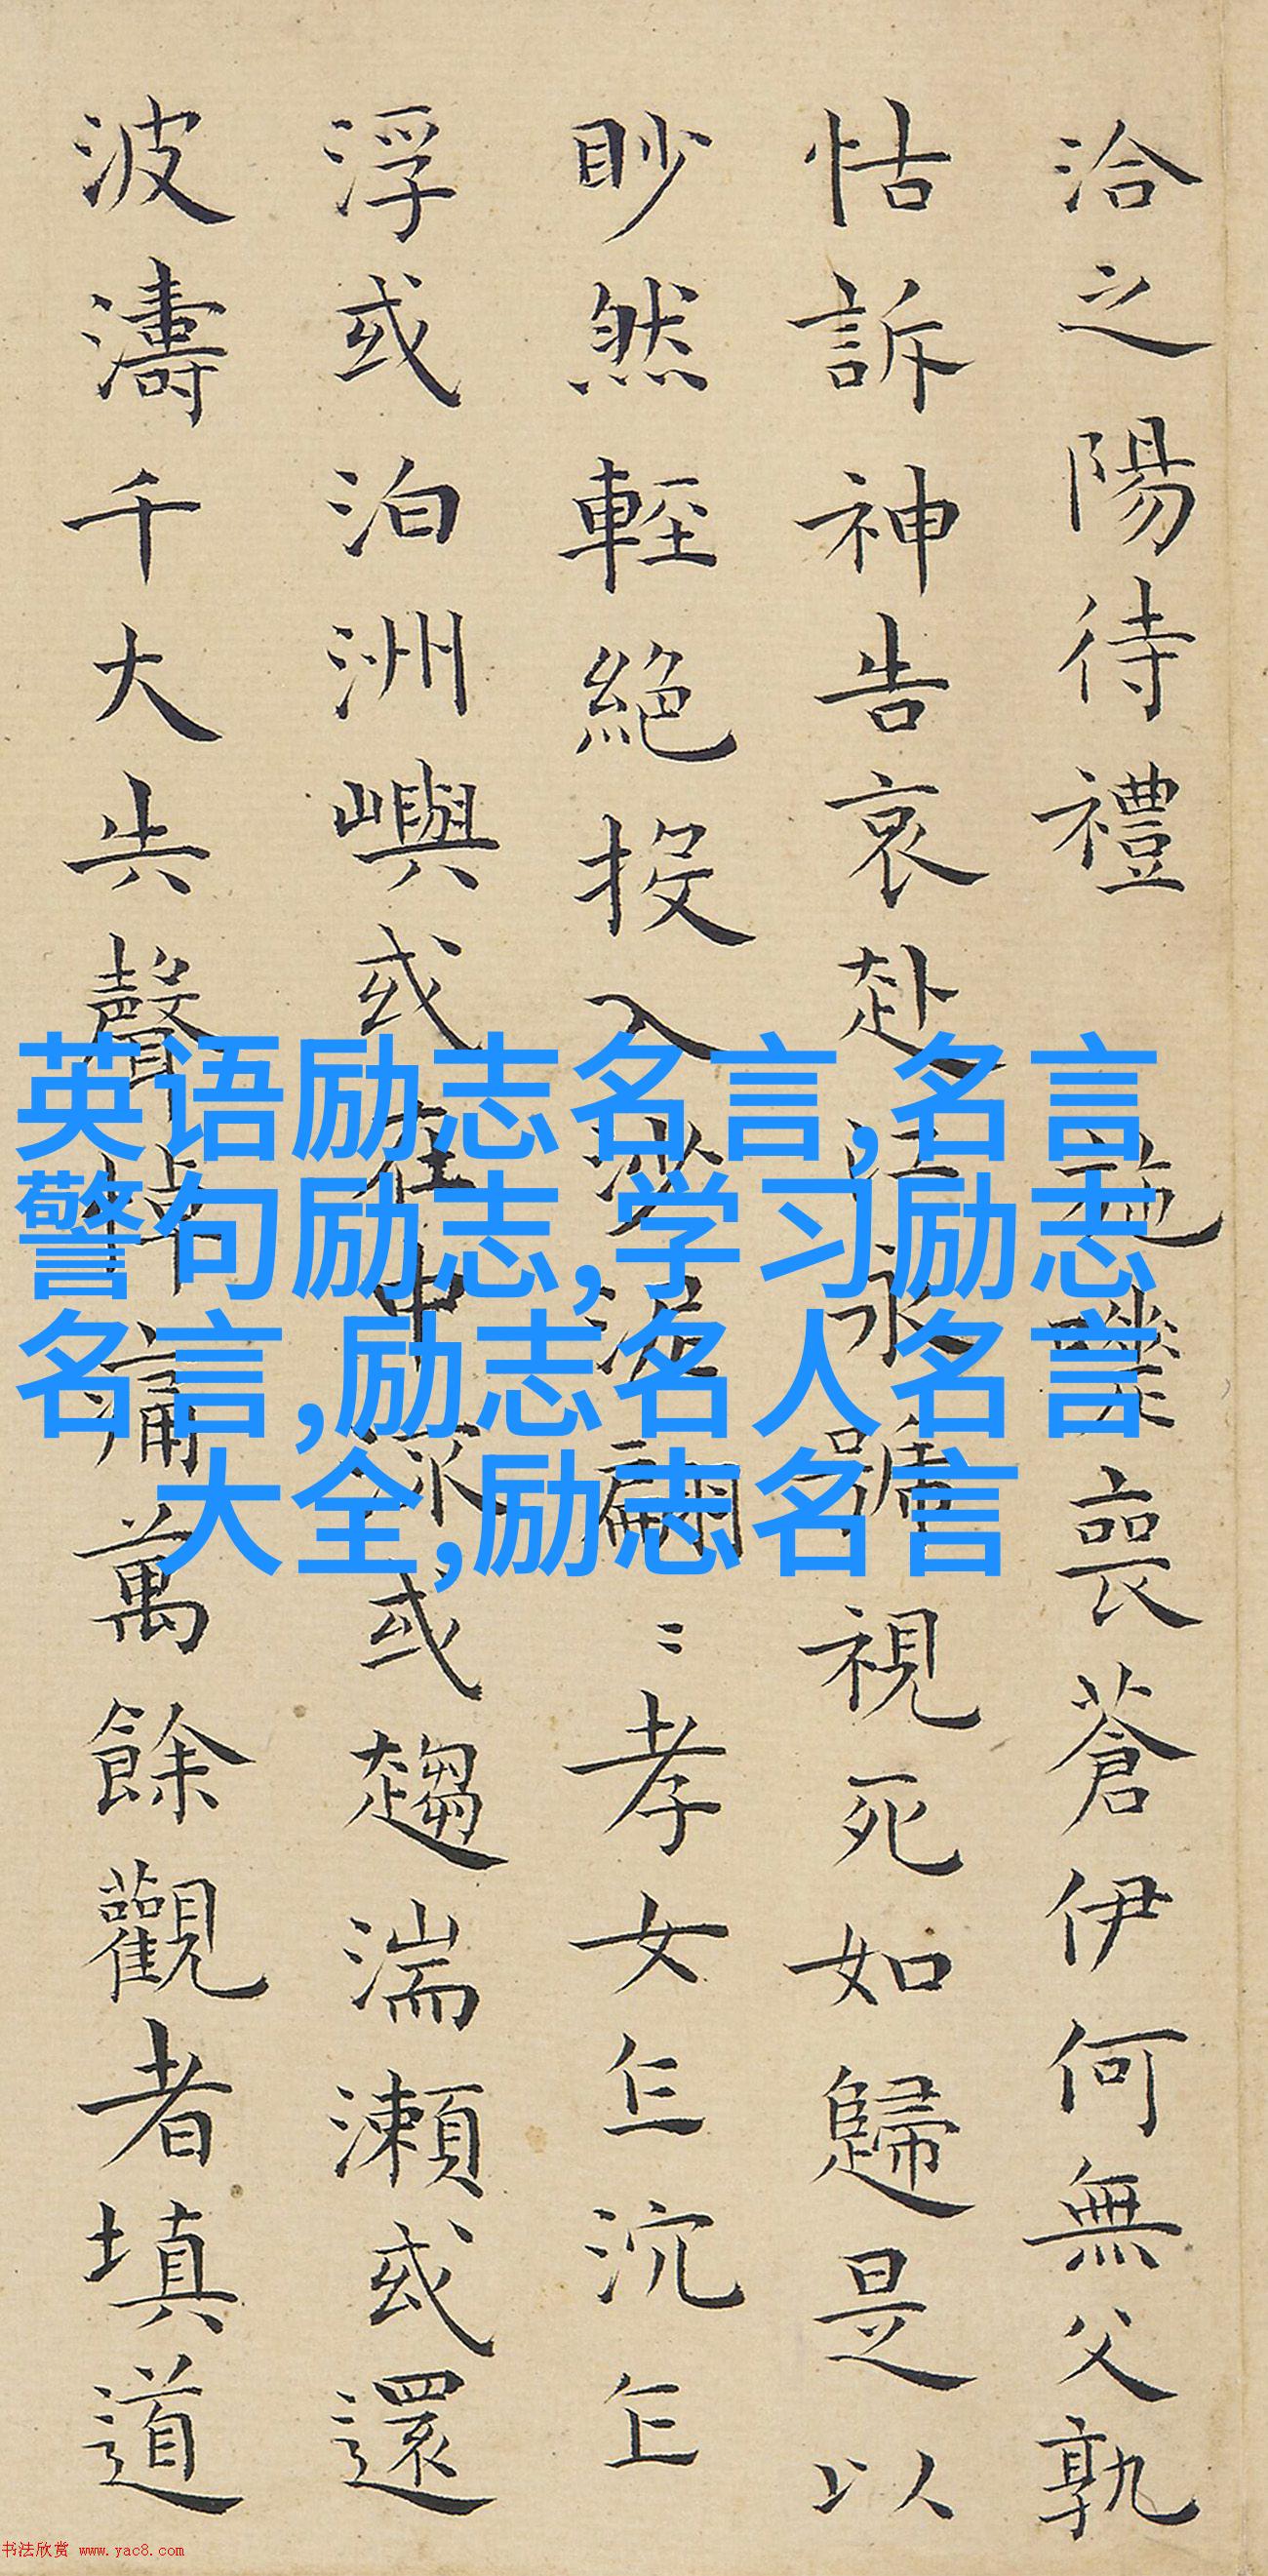 洽之陽待禮 施嗟喪蒼伊何無父孰
怙訴神告哀赴江永號視死如歸是以
眇然輕絕投入沙泥翩〻孝女乍沉乍
浮或泊洲嶼或在中流或趨湍瀨或還
波濤千大失聲悼痛萬餘觀者填道
英语励志名言,名言
警句励志,学习励志
名言,励志名人名言
大全,励志名言
书法欣赏 www.yac8.com